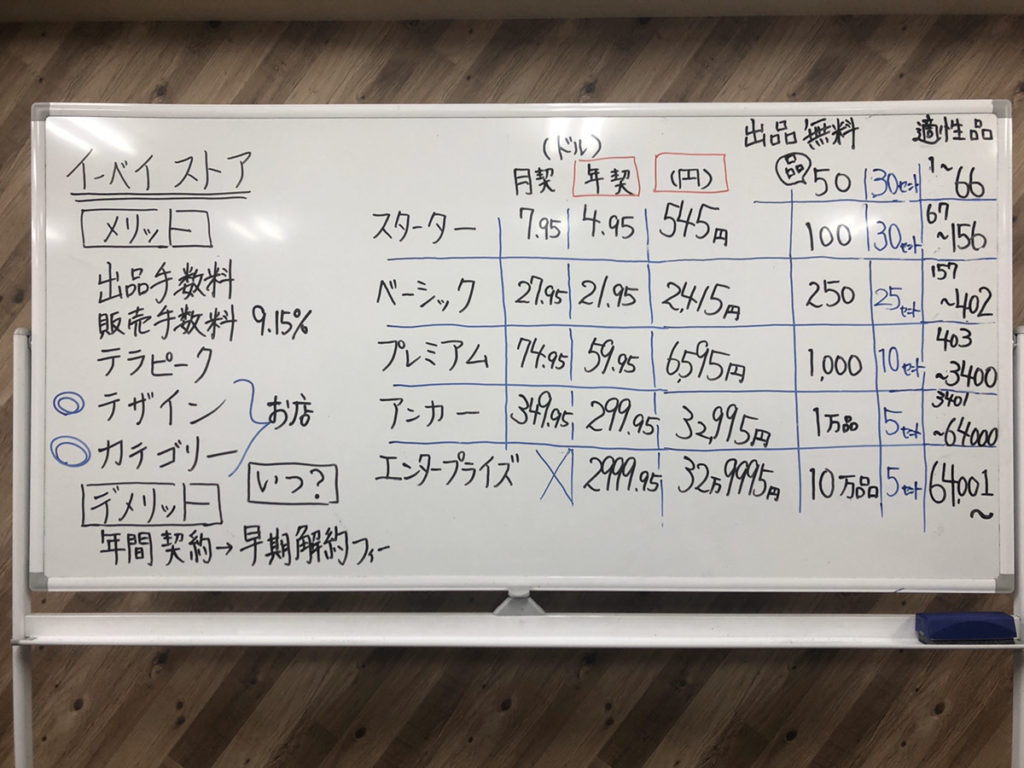 イーベイ ストア
メリット
出品手数料
販売手数料 9.15%
テラピーク
デザイン
カテゴリー
お店
デメリット
いつ?
年間契約→早期解約フィー
(ドル) 出品無料 適性品
月契 年契 (円) 品 50 30セット 1~66
スターター 7.95 4.95 545円 100 30セット 67~156
ベーシック 27.95 21.95 2,415円 250 25セット 157~402
プレミアム 74.95 59.95 6,595円 1,000 10セット 403~3400
アンカー 349.95 299.95 32,995円 1万品 5セット 3401~64000
エンタープライズ X 2999.95 32万9995円 10万品 5セット 64,001~